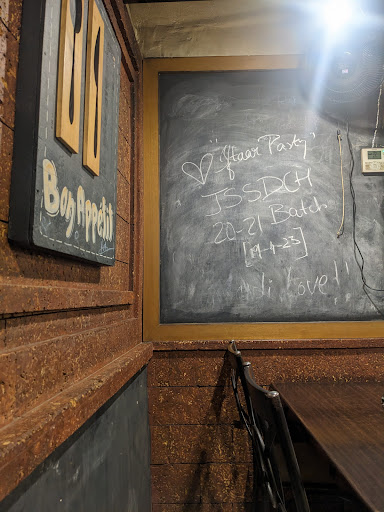 Bon Appetit
"iftaar Party"
JSSDCH
20-21 Batch
[19-4-23]
Love!!